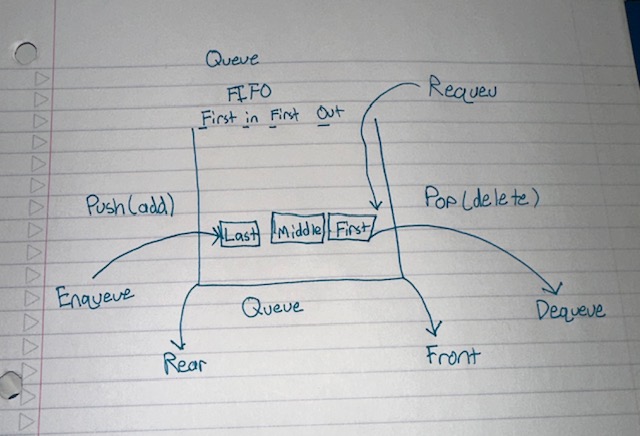 Queue
FIFO
First in First Out
Requeu
Push(add)
Pop(delete)
Last
Middle
First
Enqueue
Queue
Dequeue
Rear
Front